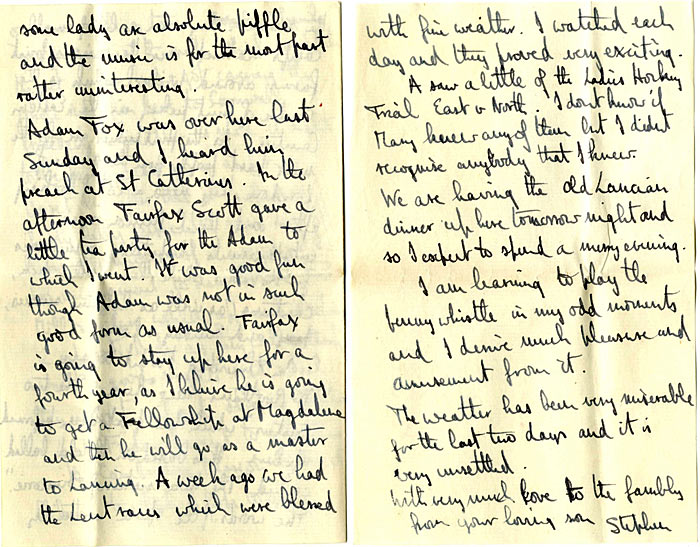 some lady are absolute piffle
and the music is for the most part
rather uninteresting.
Adam Fox was over here last
Sunday and I heard him
preach at St Catherines. In the
afternoon Fairfax Scott gave a
little tea party for the Adam to
which I went. It was good fun
though Adam was not in such
good form as usual. Fairfax
is going to stay up here for a
fourth year, as I believe he is going
to get a Fellowship at Magdalene
and then he will go as a master
to Lancing. A week ago we had
the Lent races which were blessed
with fine weather. I watched each
day and they proved very exciting.
A saw a little of the Ladies Hockey
Trial East v North. I dont know if
Mary knew any of them but I didnt
recognise anybody that I knew.
We are having the old Lancian
dinner up here tomorrow night and
so I expect to spend a merry evening.
I am learning to play the
penny whistle in my odd moments
and I derive much pleasure and
amusement from it.
The weather has been very miserable
for the last two days and it is
very unsettled.
With very much love to the family
from your loving son Stephen